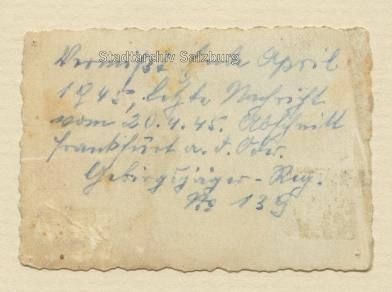 Stadtarchiv Salzburg
Vermißt, Ende April
1945, letzte Nachricht
vom 20.4.45. Abschnitt
Frankfurt a. d. Oder.
Gebirgsjäger-Reg.
No 139